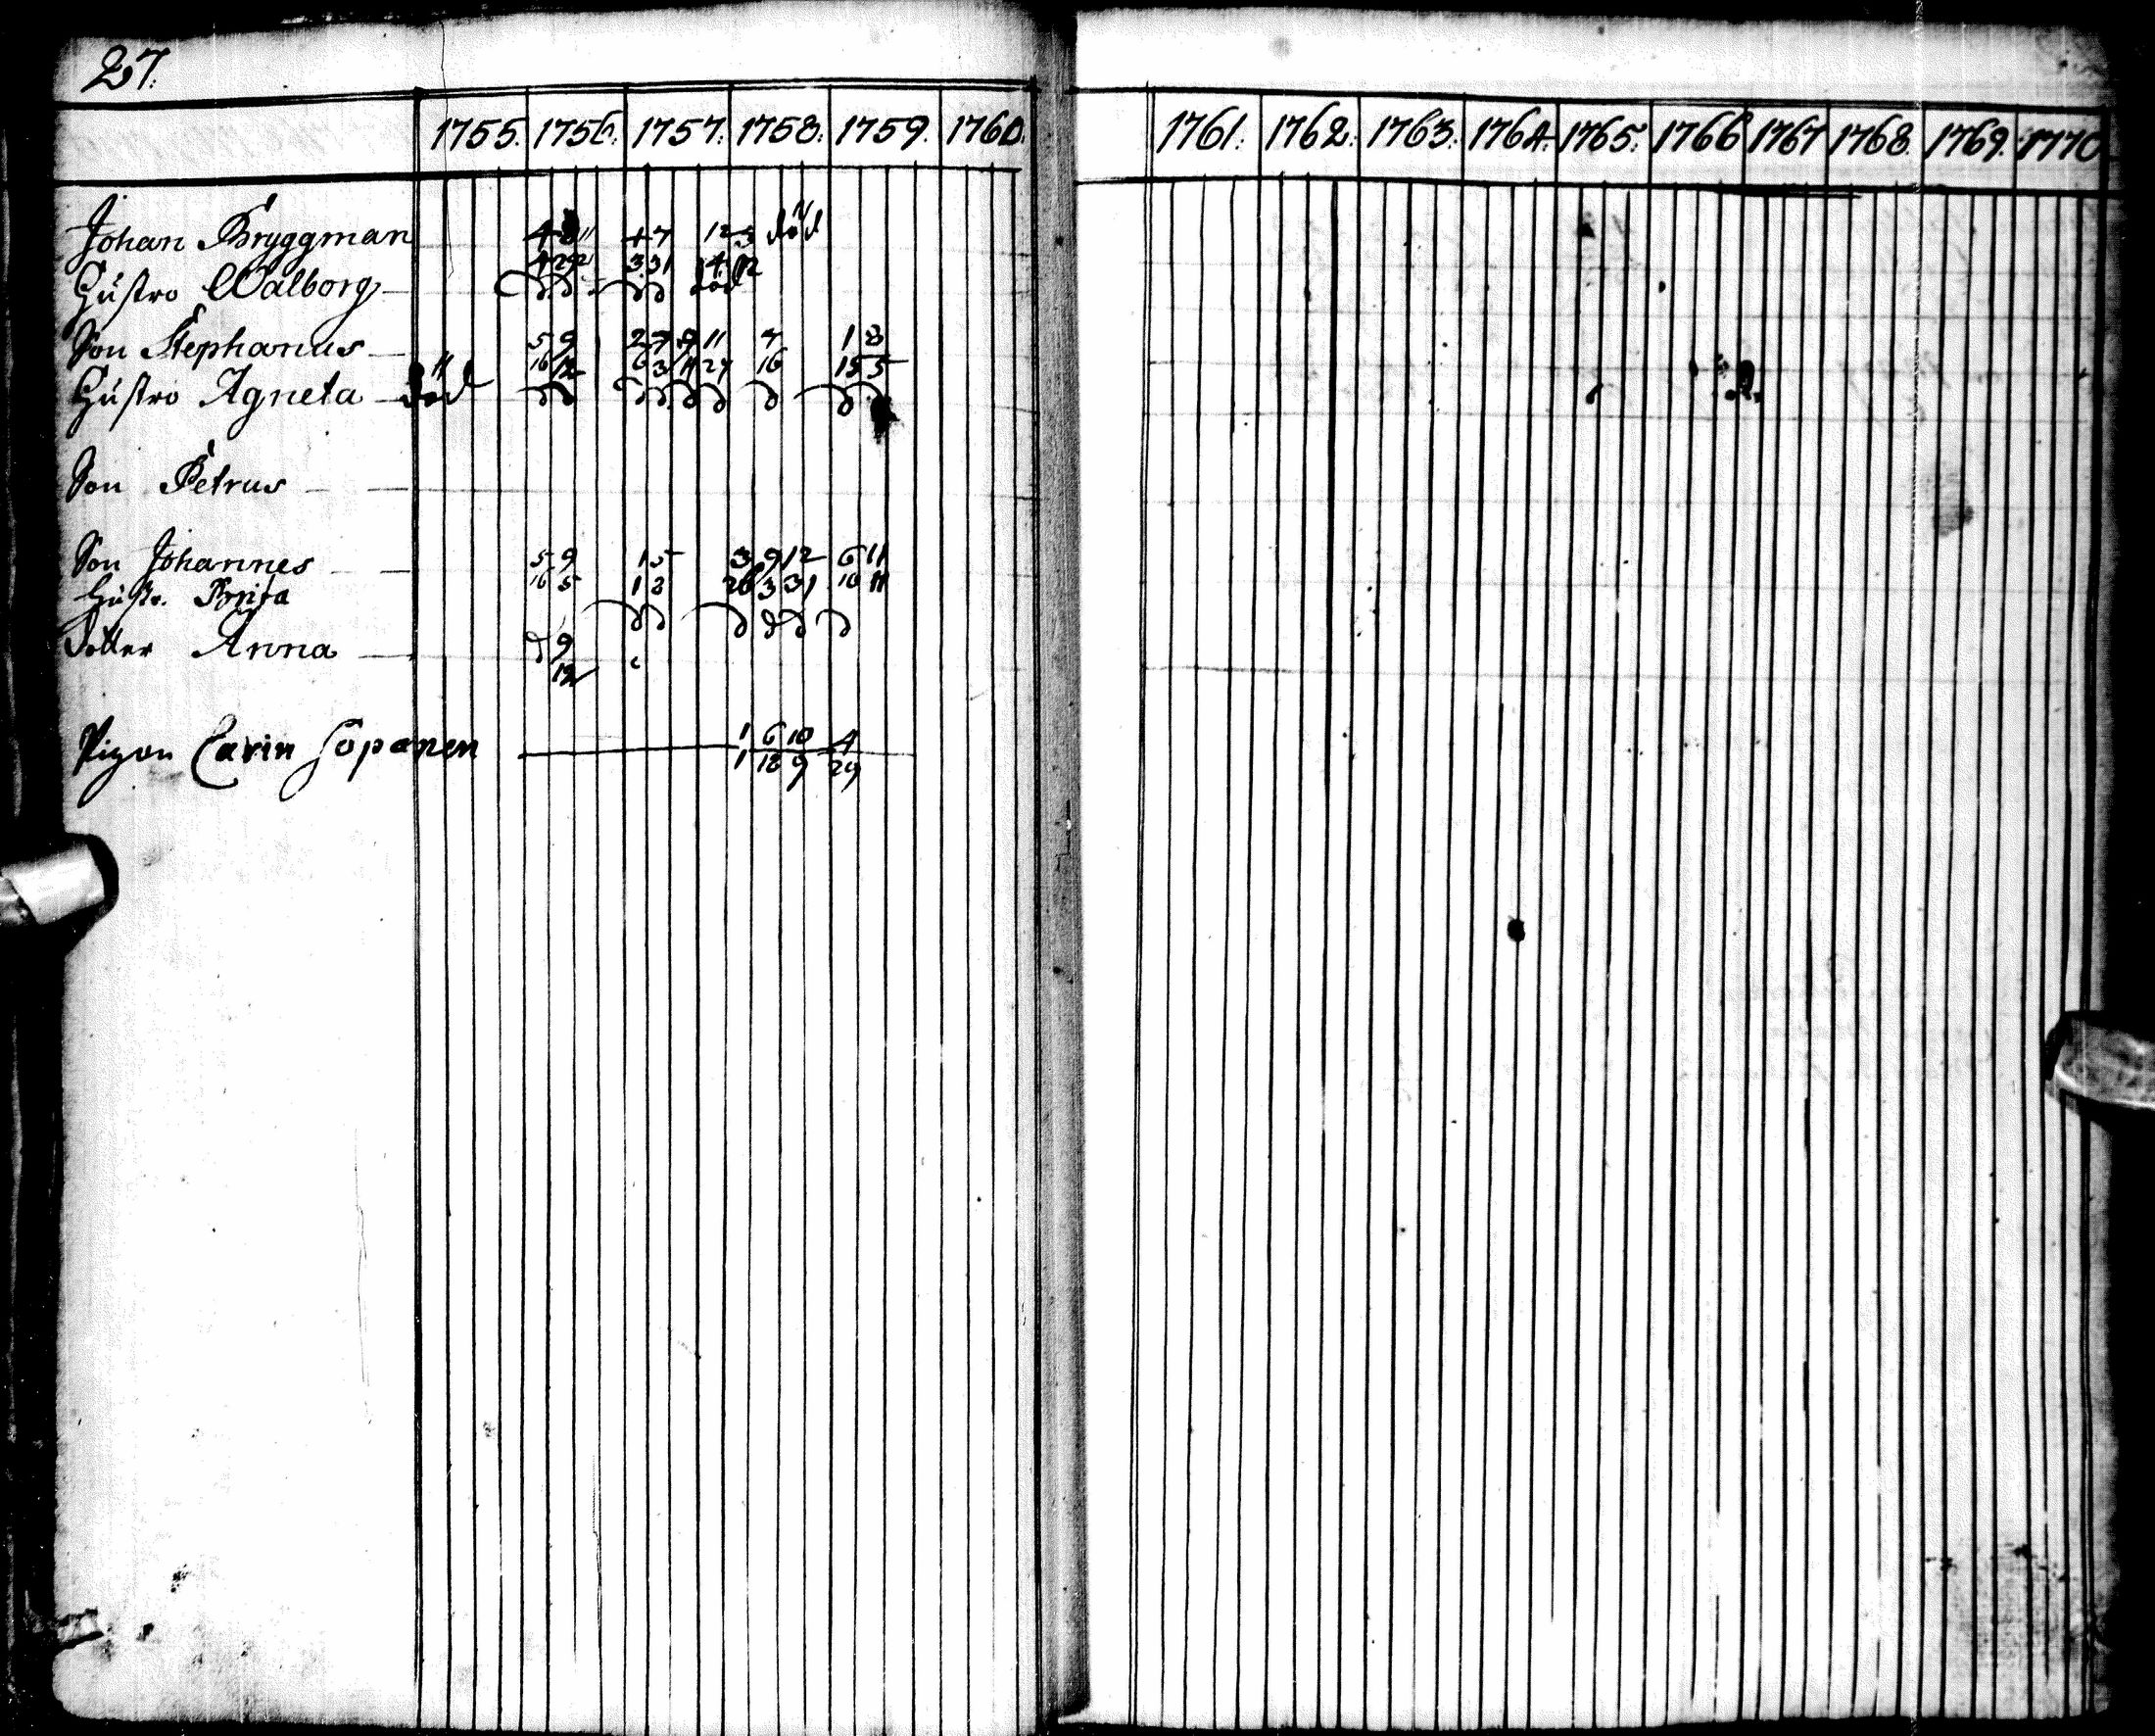 27.
1755. 1756. 1757. 1758. 1759. 1760. 1761. 1762. 1763. 1764. 1765. 1766 1767 1768 1769. 1770
Johan Bryggman 4 8 11 4 7 12 3 död
Hustro Walborg 4 29 21 3 31 14 12 död
Son Stephanus 5 9 2 7 9 11 7 1 8
Hustro Agneta död 16 12 6 3 11 27 16 15 5
Son Petrus
Son Johannes 5 9 1 5 3 9 12 6 11
Hustr. Brita 16 5 1 8 26 3 31 10 11
Dotter Anna 9
12
Pigan Carin Sopanen 1 6 10 4
1 18 9 29